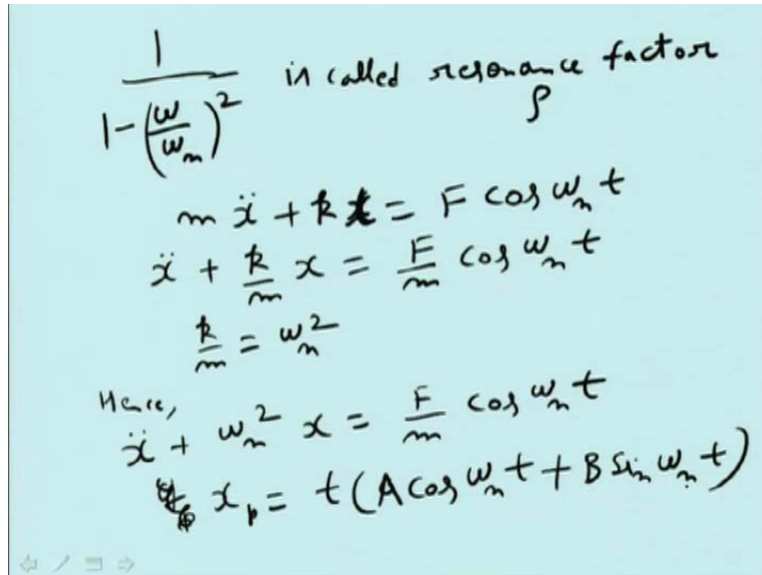 1/(1-(ω/ω_n)²) is called resonance factor
ρ
m ẍ + k x = F cos ω_n t
ẍ + k/m x = F/m cos ω_n t
k/m = ω_n²
Hence,
ẍ + ω_n² x = F/m cos ω_n t
x_p = t(A cos ω_n t + B sin ω_n t)